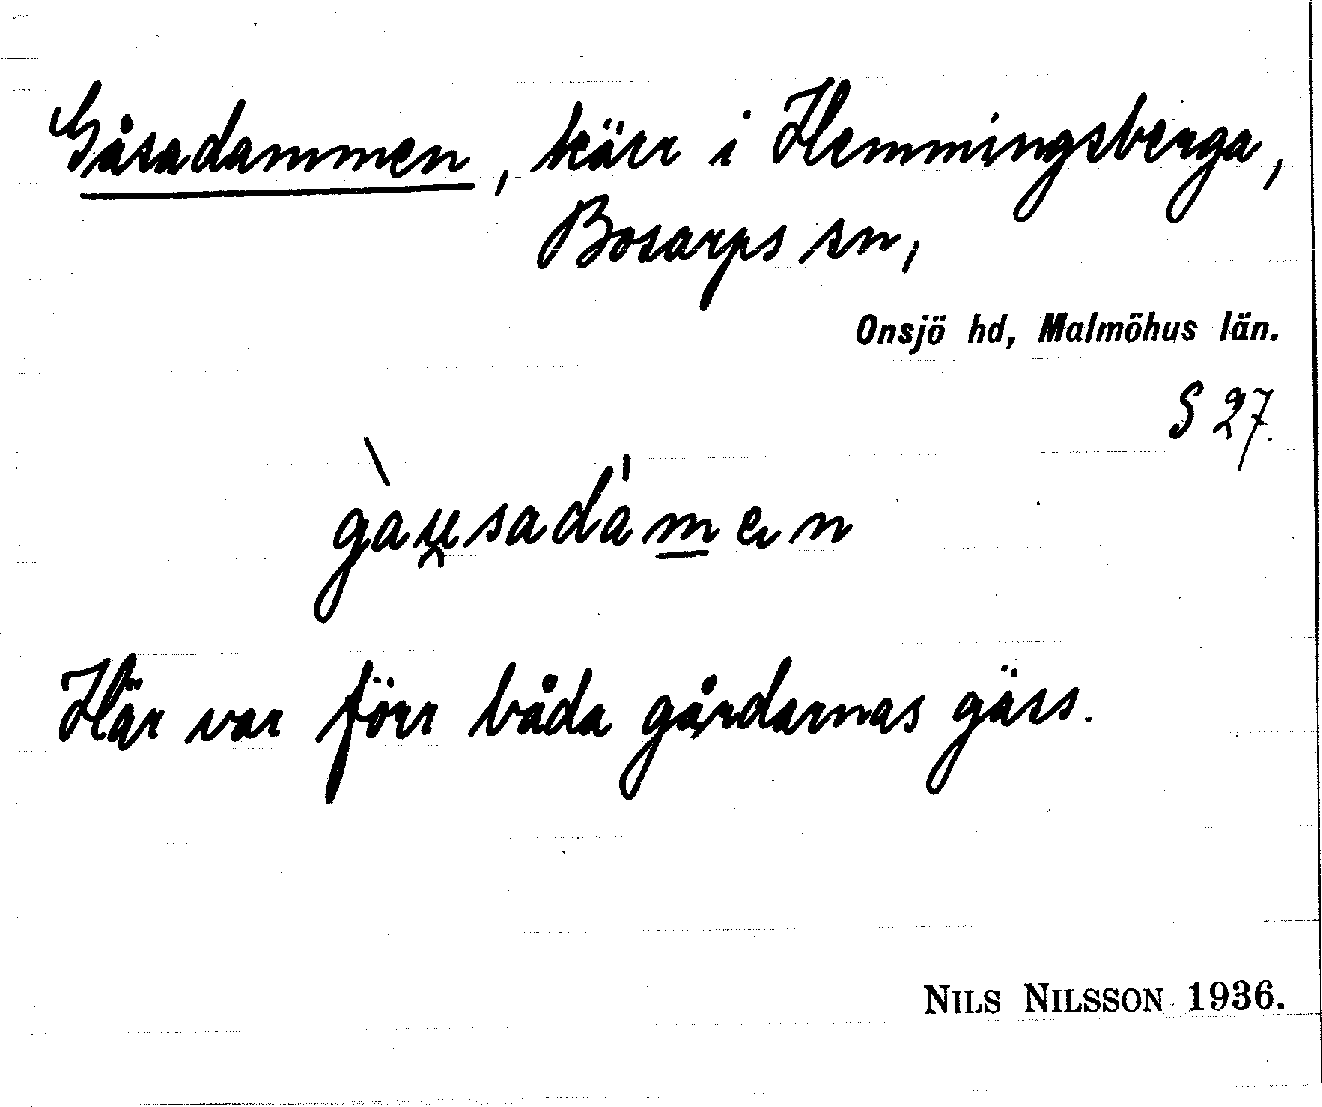 Gåsadammen, kärr i Hemmingsberga,
Bosarps sn,
Onsjö hd, Malmöhus län.
S 27.
gàu̯sadámen
Här var förr båda gårdarnas gäss.
NILS NILSSON 1936.